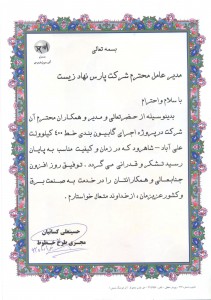 بسمه تعالی
مدیر عامل محترم شرکت پارس نهاد زیست
با سلام و احترام
بدینوسیله از حضرتعالی و مدیر و همکاران محترم آن
شرکت در پروژه اجرای گابیون بندی خط ۴۰۰ کیلوولت
علی آباد - شاهرود که در زمان و کیفیت مناسب به پایان
رسید تشکر و قدردانی می گردد . توفیق روز افزون
جنابعالی و همکارانتان را در خدمت به صنعت برق
و کشور عزیزمان ، از خداوند متعال خواستارم .
حسینعلی کسائیان
مجری طرح خطوط